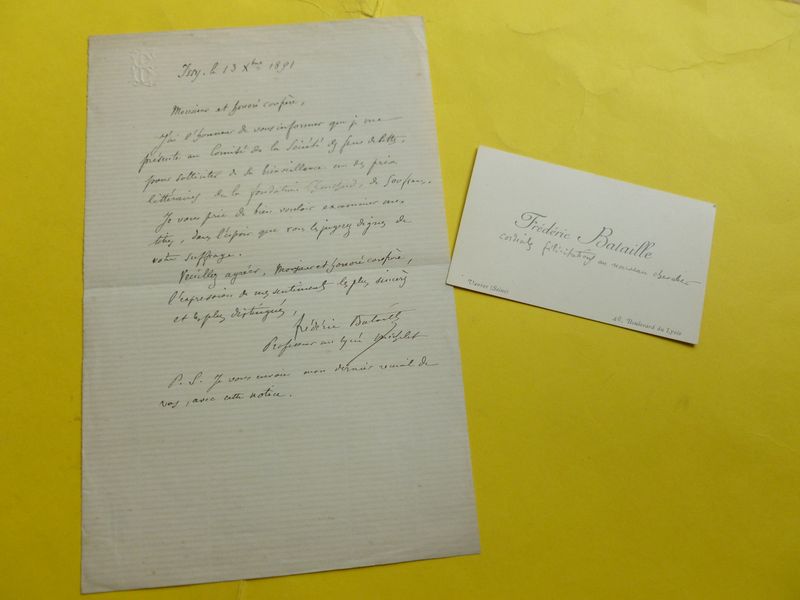 Issy, le 13 Xbre 1891
Monsieur et honoré confrère,
J'ai l'honneur de vous informer que je me
présente au Comité de la Société des Gens de lettres,
pour solliciter de sa bienveillance un des prix
littéraires de la fondation
Je vous prie de bien vouloir examiner mes
titres, dans l'espoir que vous les jugerez dignes de
votre suffrage.
Veuillez agréer, Monsieur et honoré confrère,
l'expression de mes sentiments les plus sincères
et les plus distingués,
Frédéric Bataille
Professeur au lycée Michelet
P. S. Je vous envoie mon dernier recueil de
vers, avec cette notice.
Frédéric Bataille
cordiales félicitations au nouveau chevalier
Vanves (Seine)
Boulevard du Lycée